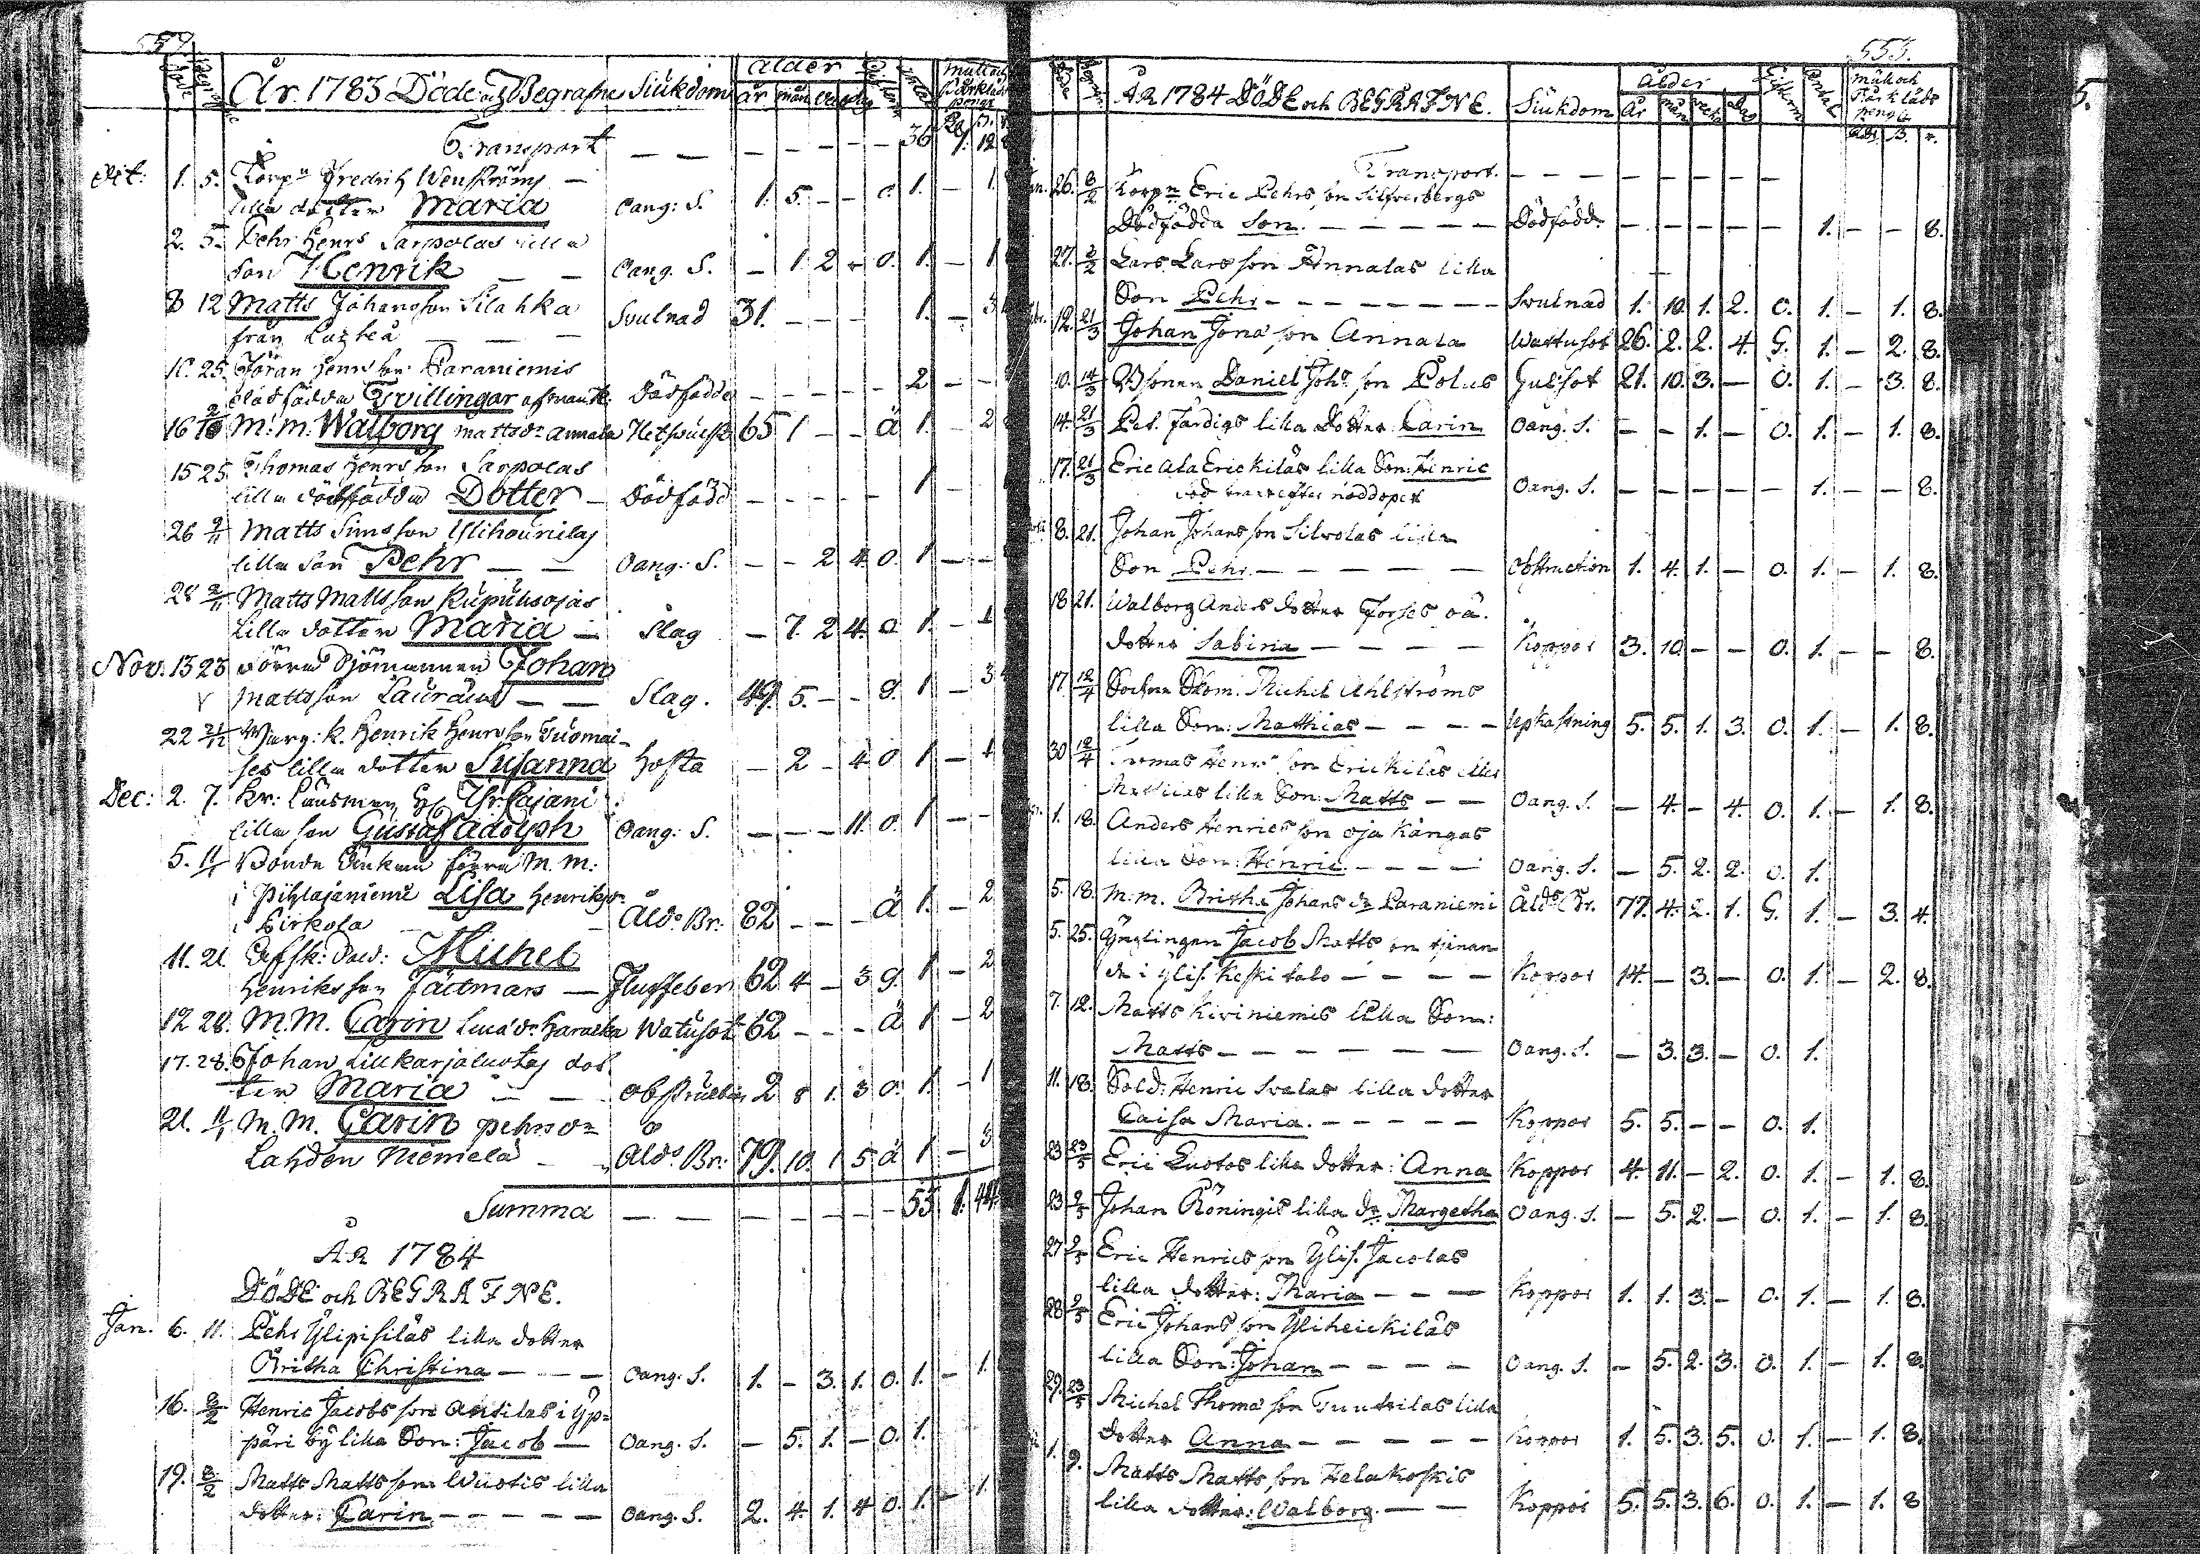 År. 1783 Döde och Begrafne Siukdom ålder år mån
Transport — — — — — — — 36
1. 5. Korpn Fredrich Wenströms —
lilla dotter Maria Oang: S. 1. 5. — — 0. 1. — 1.
2. 5. Pehr Henrs Sarpolas lilla
son Henrik — — Oang. S. — 1. 2 — 0. 1. — 1
8 12 Matts Johansson Silahka Svulnad 31. — — — 1. — 3
från
25. Jöran Henrsson Paraniemis
dödfödda Tvillingar Dödfödde — — — — — 2 — —
16 M: m: Walborg Mattsdr Annala 65 1 — — ä 1. — 2
15 25 Thomas Henrsson Sarpolas
lilla dödfödda Dotter — Dödfödd — — — — — 1 —
26 2/11 Matts Simsson
lilla son Pehr — — Oang: S. — — 2 4 0. 1 — —
28 2/11 Matts Mattsson
lilla dotter Maria — Slag — 7. 2 4. 0 1. — 1
Nov: 13 23 Förra Johan
Mattsson — — Slag. 49. 5. — — g. 1 — 3
22 21/12 Henrik Henrsson Tuomai-
ses lilla dotter Susanna Hosta — 2 — 4 0 1 — 1
Dec: 2. 7. Kr: Länsman H. Cajani
lilla son Gustaf Adolph Oang: S. — — — 11. 0. 1 — —
5. 11/1 Bonde Enkan förra M. M:
i Pihlajaniemi Lisa Henriksdr
i Pirkola — Åld: Br: 82 — — — ä 1. — 2
11. 21. Afsk: Sold: Michel
Henriksson — 62 4 — 3 g. 1 — 2
12 28. M. M. Carin Lucadr Watusot 62 — — — ä 1 — 2
17. 28. Johan Lillkarjaluotos dot
ter Maria — — 2 8 1. 3 0. 1. — 1
21. 11/1 M. M. Carin Pehrsdr
Lahden Niemelä — Åld: Br: 79. 10. 1 5 ä 1 — 3
Summa — — — — — — — 53 1. 44.
ÅR 1784
DÖDE och BEGRAFNE.
Jan. 6. 11. Pehr Ylipisiläs lilla dotter
Britha Christina — — — Oang. S. 1. — 3. 1. 0. 1. — 1.
16. 8/2 Henric Jacobs son Anttilas i Yp=
päri by lilla Son: Jacob — Oang. S. — 5. 1. — 0. 1.
19. 8/2 Matts Matts son Wuotis lilla
dotter: Carin — — — — — Oang. S. 2. 4. 1. 4 0. 1. — 1.
553.
ÅR 1784 DÖDE och BEGRAFNE. Siukdom Ålder År mån
Mull och
Bårkläds
peng.
Transport. — — — — — — —
26. 8/2 Korpn Eric Pehrs son Silfverbergs
Dödfödda Son. — — — — — Dödfödd. — — — — — 1. — — 8.
27. 8/2 Lars Lars son Annalas lilla
Son Pehr — — — — — — Svulnad 1. 10. 1. 2. 0. 1. — 1. 8.
12. 21/3 Johan Jona son Annala Wattusot 26. 2. 2. 4. G. 1. — 2. 8.
10. 14/3 Daniel Johs son Polus Gulsot 21. 10. 3. — 0. 1. — 3. 8.
14. 21/3 Pet. Färdigs lilla Dotter Carin Oang. S. — — 1. — 0. 1. — 1. 8.
17. 21/3 Eric Ala Erickiläs lilla Son: Henric
död efter nöddopet Oang. S. — — — — — 1. — — 8.
8. 21. Johan Johans son Silvolas lilla
Son Pehr. — — — — — Obstruction 1. 4. 1. — 0. 1. — 1. 8.
18 21. Walborg Anders dotter Forses oä.
dotter Sabina — — — — Koppor 3. 10. — — 0. 1. — — 8.
17. 12/4 Sockn Skom. Michel Ahlströms
lilla Son: Matthias — — — — Upkastning 5. 5. 1. 3. 0. 1. — 1. 8.
30 12/4 Tomas Henrs son Erickiläs eller
Mattilas lilla Son: Matts — — Oang. S. — 4. — 4. 0. 1. — 1. 8.
1. 18. Anders Henrics son Ojakångas
lilla Son: Henric. — — — — Oang. S. — 5. 2. 2. 0. 1.
5. 18. M: m. Britha Johans dr Paraniemi Åld. Br. 77. 4. 2. 1. G. 1. — 3. 4.
5. 25. Ynglingen Jacob Matts son tjenan
de i Ylis. Keskitalo — — — — Koppor 14. — 3. — 0. 1. — 2. 8.
7. 12. Matts Kiviniemis lilla Son:
Matts — — — — — — Oang. S. — 3. 3. — 0. 1.
11. 18. Sold: Henric Svalas lilla dotter
Caisa Maria. — — — — — Koppor 5. 5. — — 0. 1.
23 23/5 Eric Luotos lilla dotter: Anna Koppor 4. 11. — 2. 0. 1. — 1. 8.
23 2/5 Johan Röningis lilla dr. Margetha Oang. S. — 5. 2. — 0. 1. — 1. 8.
27 2/5 Eric Henrics son Ylis. Jacolas
lilla dotter: Maria — — — Koppor 1. 1. 3. — 0. 1. — 1. 8.
28 2/5 Eric Johans son Yliheickiläs
lilla Son: Johan — — — — Oang. S. — 5. 2. 3. 0. 1. — 1. 8.
29. 23/5 Michel Thoma son Tuutilas lilla
dotter Anna — — — — — Koppor 1. 5. 3. 5. 0. 1. — 1. 8.
1. 9. Matts Matts son Halakoskis
lilla dotter: Walborg. — — Koppor 5. 5. 3. 6. 0. 1. — 1. 8